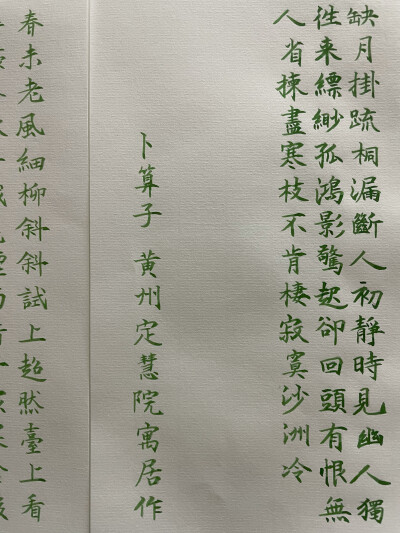 缺月掛疏桐漏斷人初靜時見幽人獨
徃来縹緲孤鴻影驚起卻回頭有恨無
人省揀盡寒枝不肯棲寂寞沙洲冷
卜算子 黄州定慧院寓居作
春未老風細柳斜斜試上超然臺上看